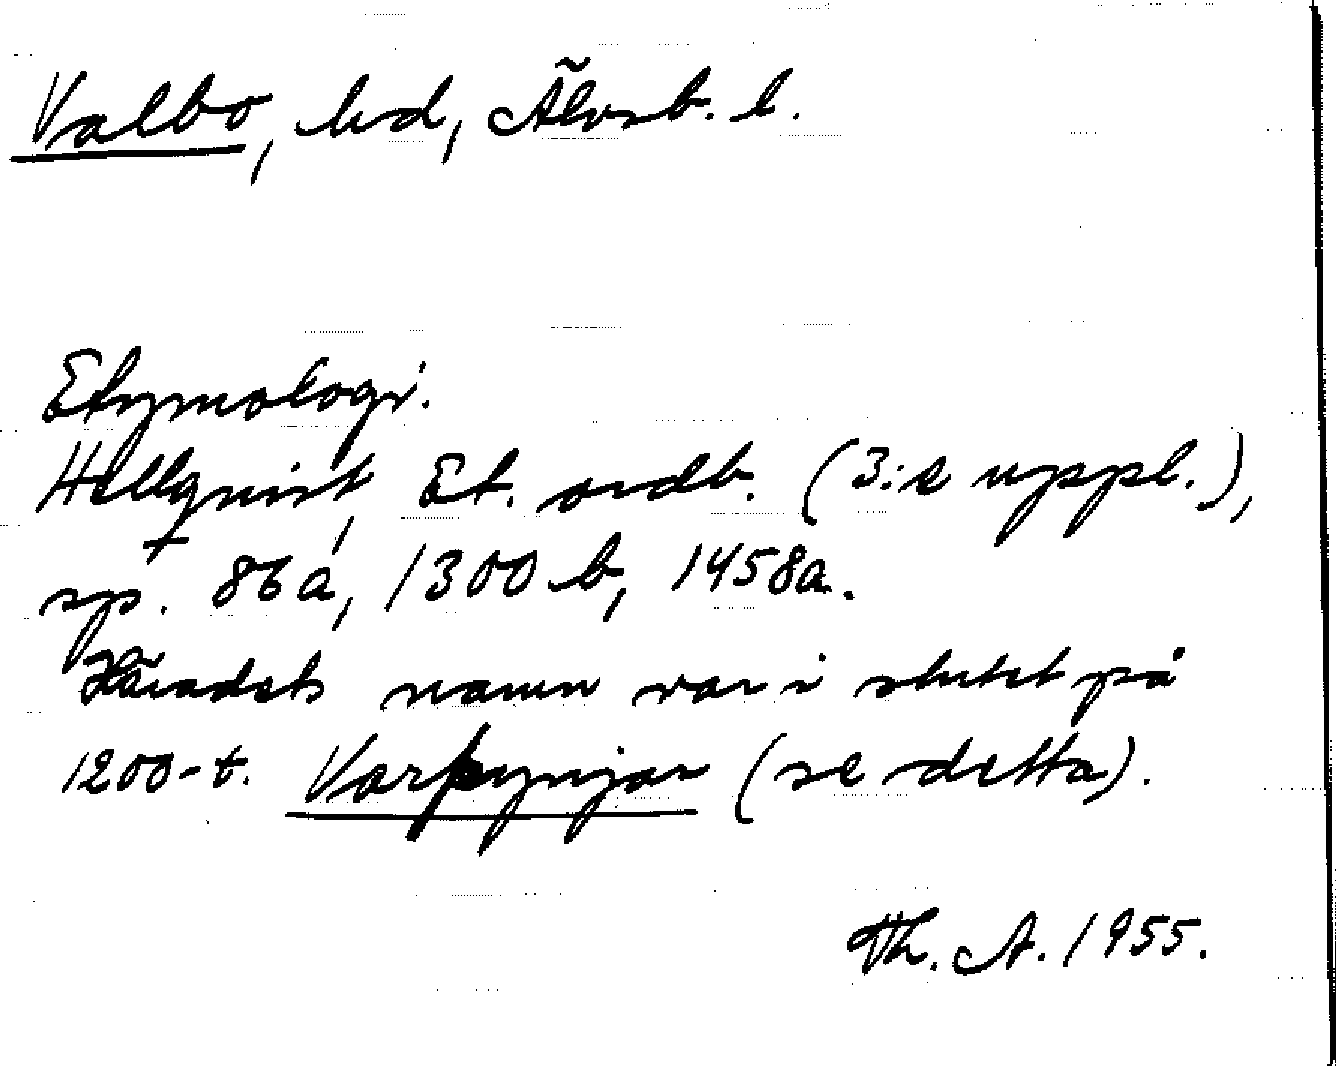 Valbo, hd, Älvsb. l.
Etymologi.
Hellquist, Et. ordb. (3:e uppl.),
sp. 86a, 1300 b, 1458a.
Häradets namn var i slutet på
1200-t. Varþynjar (se detta).
Th. A. 1955.